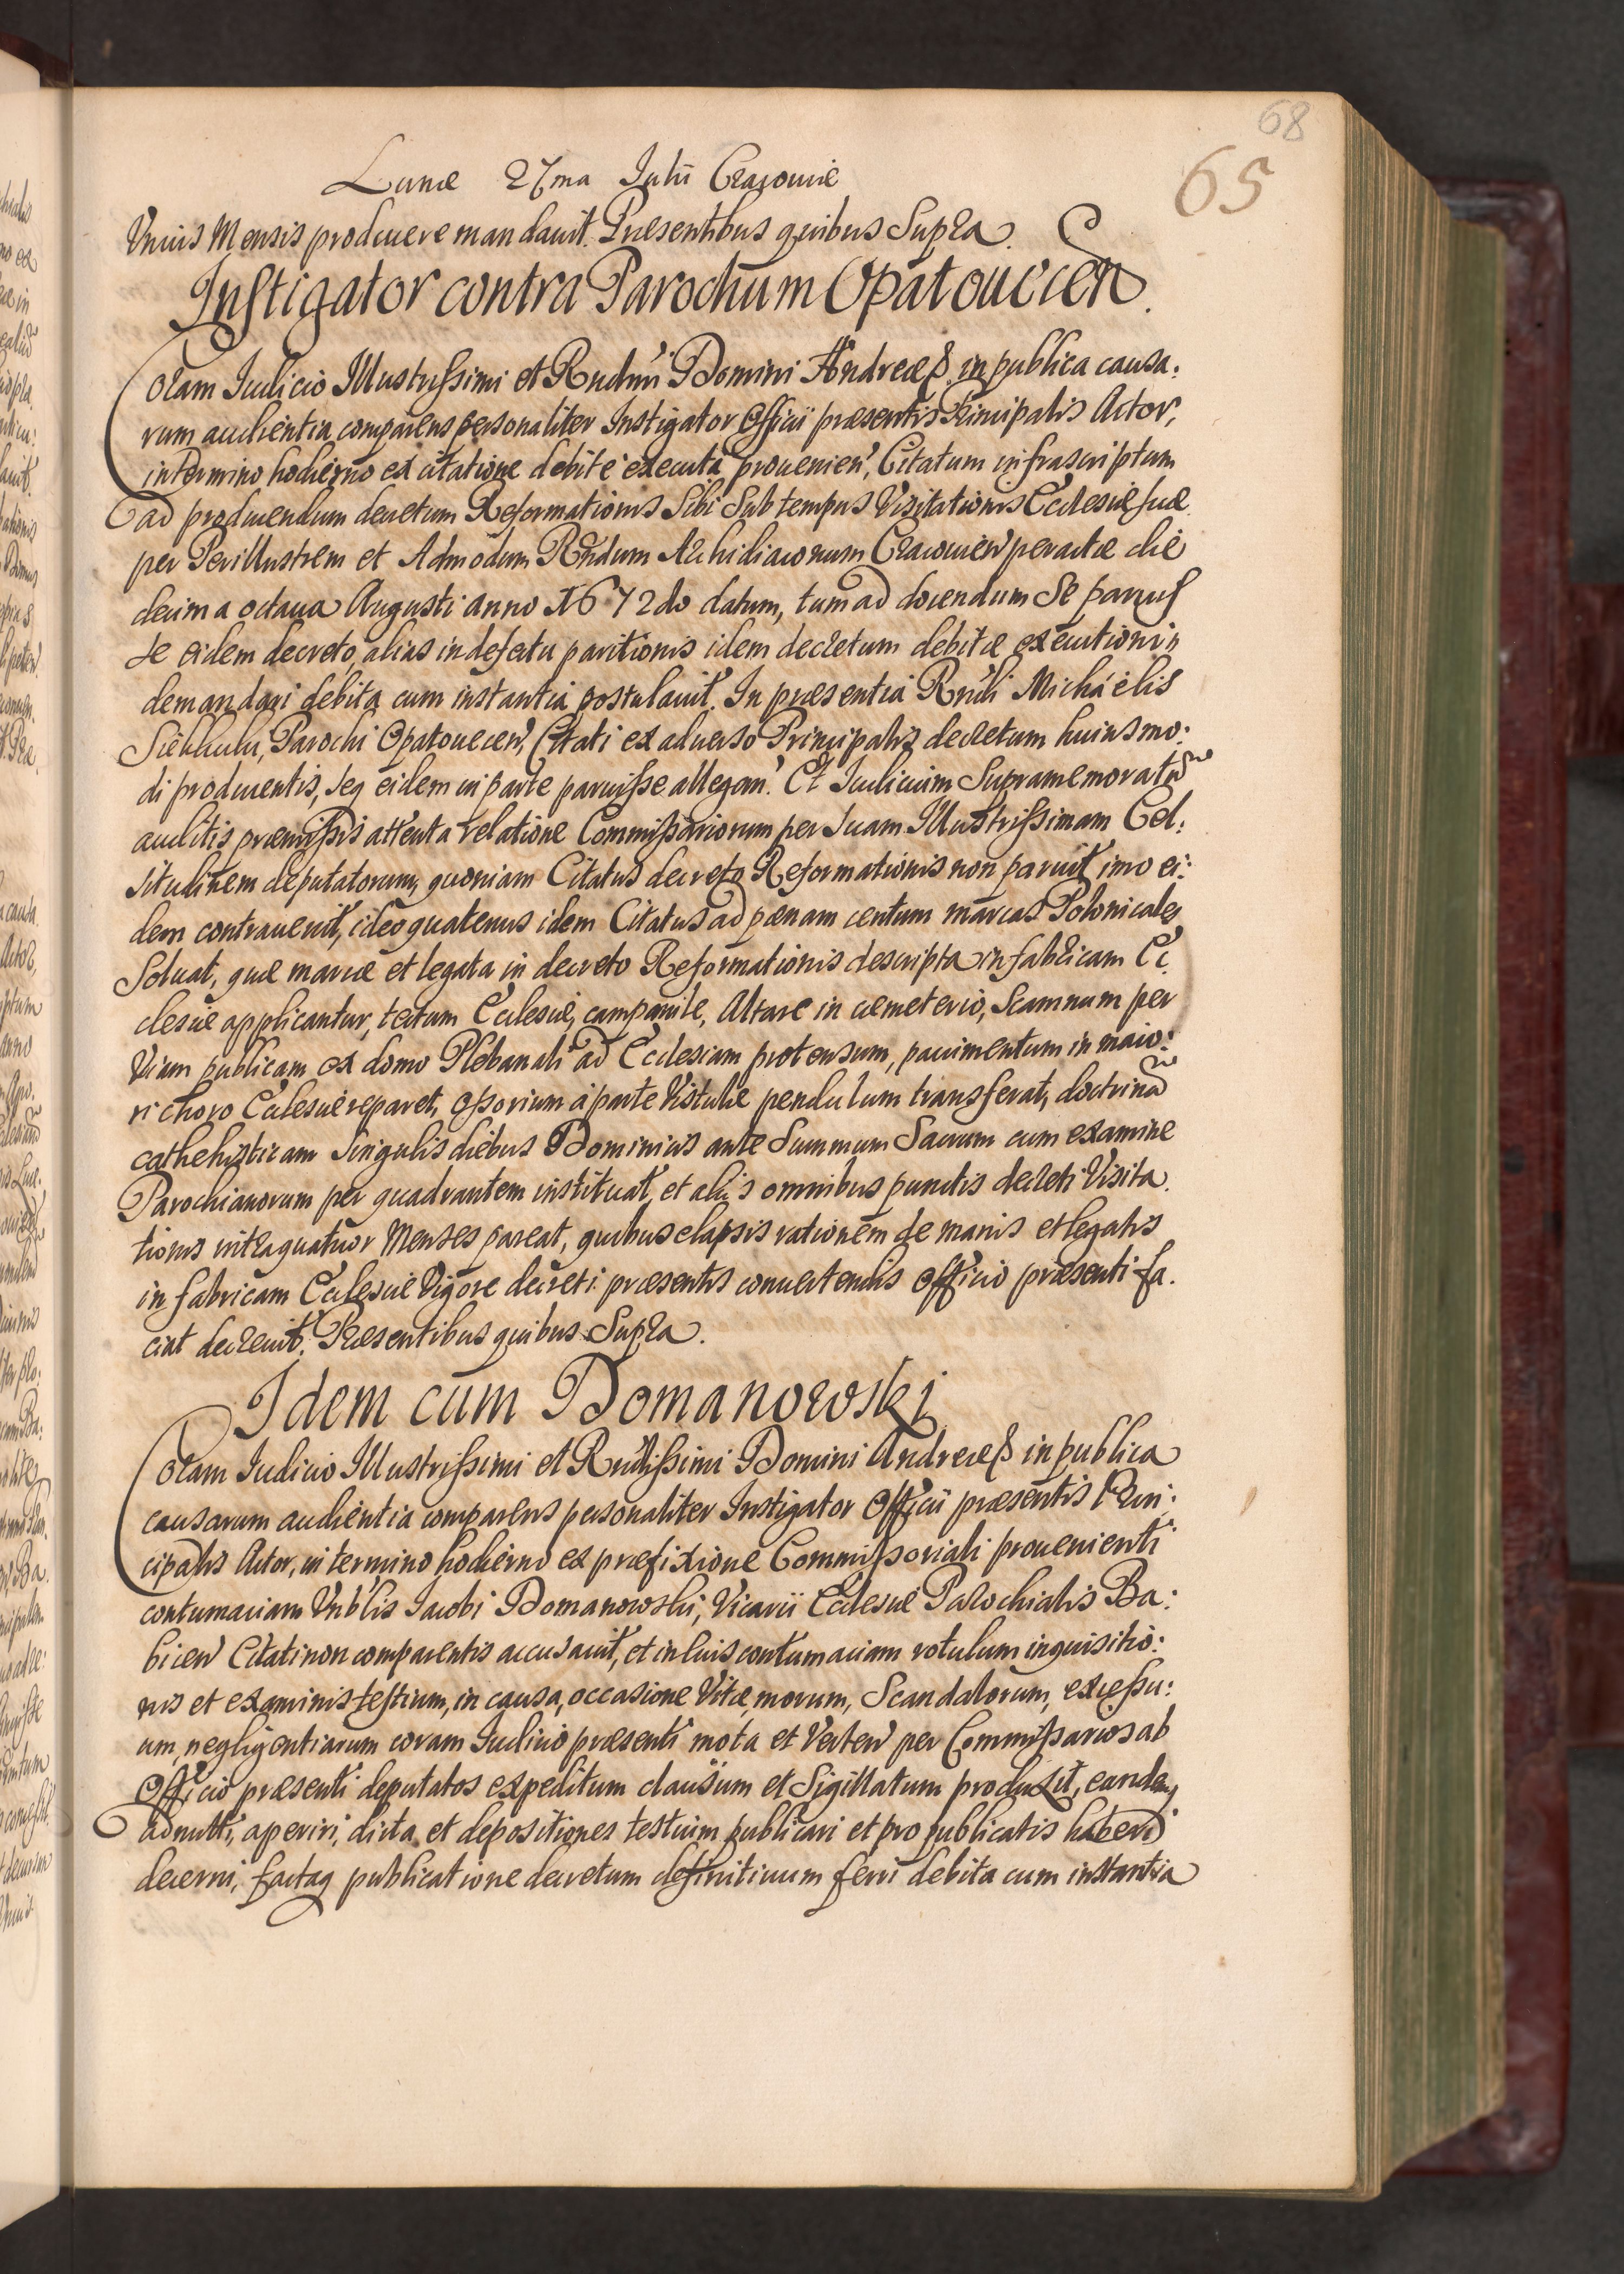 68
65
Lunæ 27ma Julii Cracouiæ
Vnius Mensis producere mandauit. Præsentibus quibus Supra.
Instigator contra Parochum Opatouecen̄.
Coram Iudicio Illustrissimi et Rndmi Domini Andreæ &. in publica causa:
rum audientia comparens personaliter Instigator Officii præsentis Principalis Actor,
in termino hodierno ex citatione debite executa prouenien̄, Citatum infrascriptum
ad producendum decretum Reformationis Sibi Sub tempus Visitationis Ecclesiæ suæ
per Perillustrem et Admodum Rndum Archidiaconum Cracouien̄ peractæ die
decima octaua Augusti anno 1672do datum, tum ad docendum Se paruis
se eidem decreto, alias in defectu paritionis idem decretum debitæ executioni
demandari debita cum instantia postulauit. In præsentia Rndi Michaëlis
Parochi Opatouecen̄, Citati ex aduerso Principalis decretum huiusmo:
di producentis, seq eidem in parte paruisse allegan̄. Et Iudicium Supramemoratū
auditis præmissis attenta relatione Commissariorum per Suam Illustrissimam Cel:
situdinem deputatorum, quoniam Citatus decreto Reformationis non paruit imo ei:
dem contrauenit, ideo quatenus idem Citatus ad pœnam centum marcas Polonicales
Soluat, quæ marcæ et legata in decreto Reformationis descripta in fabricam Ec:
clesiæ applicantur, tectum Ecclesiæ, campanile, Altare in cæmeterio, Scamnum per
Viam publicam ex domo Plebanali ad Ecclesiam protensum, pauimentum in maio:
ri choro Ecclesiæ reparet, ossorium à parte Vistulæ pendulum transferat, doctrinā
cathehisticam Singulis diebus Dominicis ante Summum Sacrum cum examine
Parochianorum per quadrantem instituat, et aliis omnibus punctis decreti Visita
tionis intra quatuor Menses pareat, quibus elapsis rationem de marcis et legatis
in fabricam Ecclesiæ Vigore decreti præsentis conuertendis Officio præsenti fa
ciat decreuit. Præsentibus quibus Supra.
Idem cum Domanowski
Coram Iudicio Illustrissimi et Rndissimi Domini Andreæ & in publica
causarum audientia comparens personaliter Instigator Officii præsentis Prin:
cipalis Actor, in termino hodierno ex præfixione Commissoriali prouenienti
contumaciam Vnblis Iacobi Domanowski, Vicarii Ecclesiæ Parochialis Ba:
bicen̄ Citati non comparentis accusauit, et in huius contumaciam rotulum inquisitio:
nis et examinis testium, in causa, occasione Vitæ, morum, Scandalorum, excessu:
um, negligentiarum coram Iudicio præsenti mota et Verten̄ per Commissarios ab
Officio præsenti deputatos expeditum clausum et Sigillatum produxit, eundemq
admitti, aperiri, dicta et depositiones testium publicari et pro publicatis haberi
decerni, factaq publicatione decretum definitiuum ferri debita cum instantia